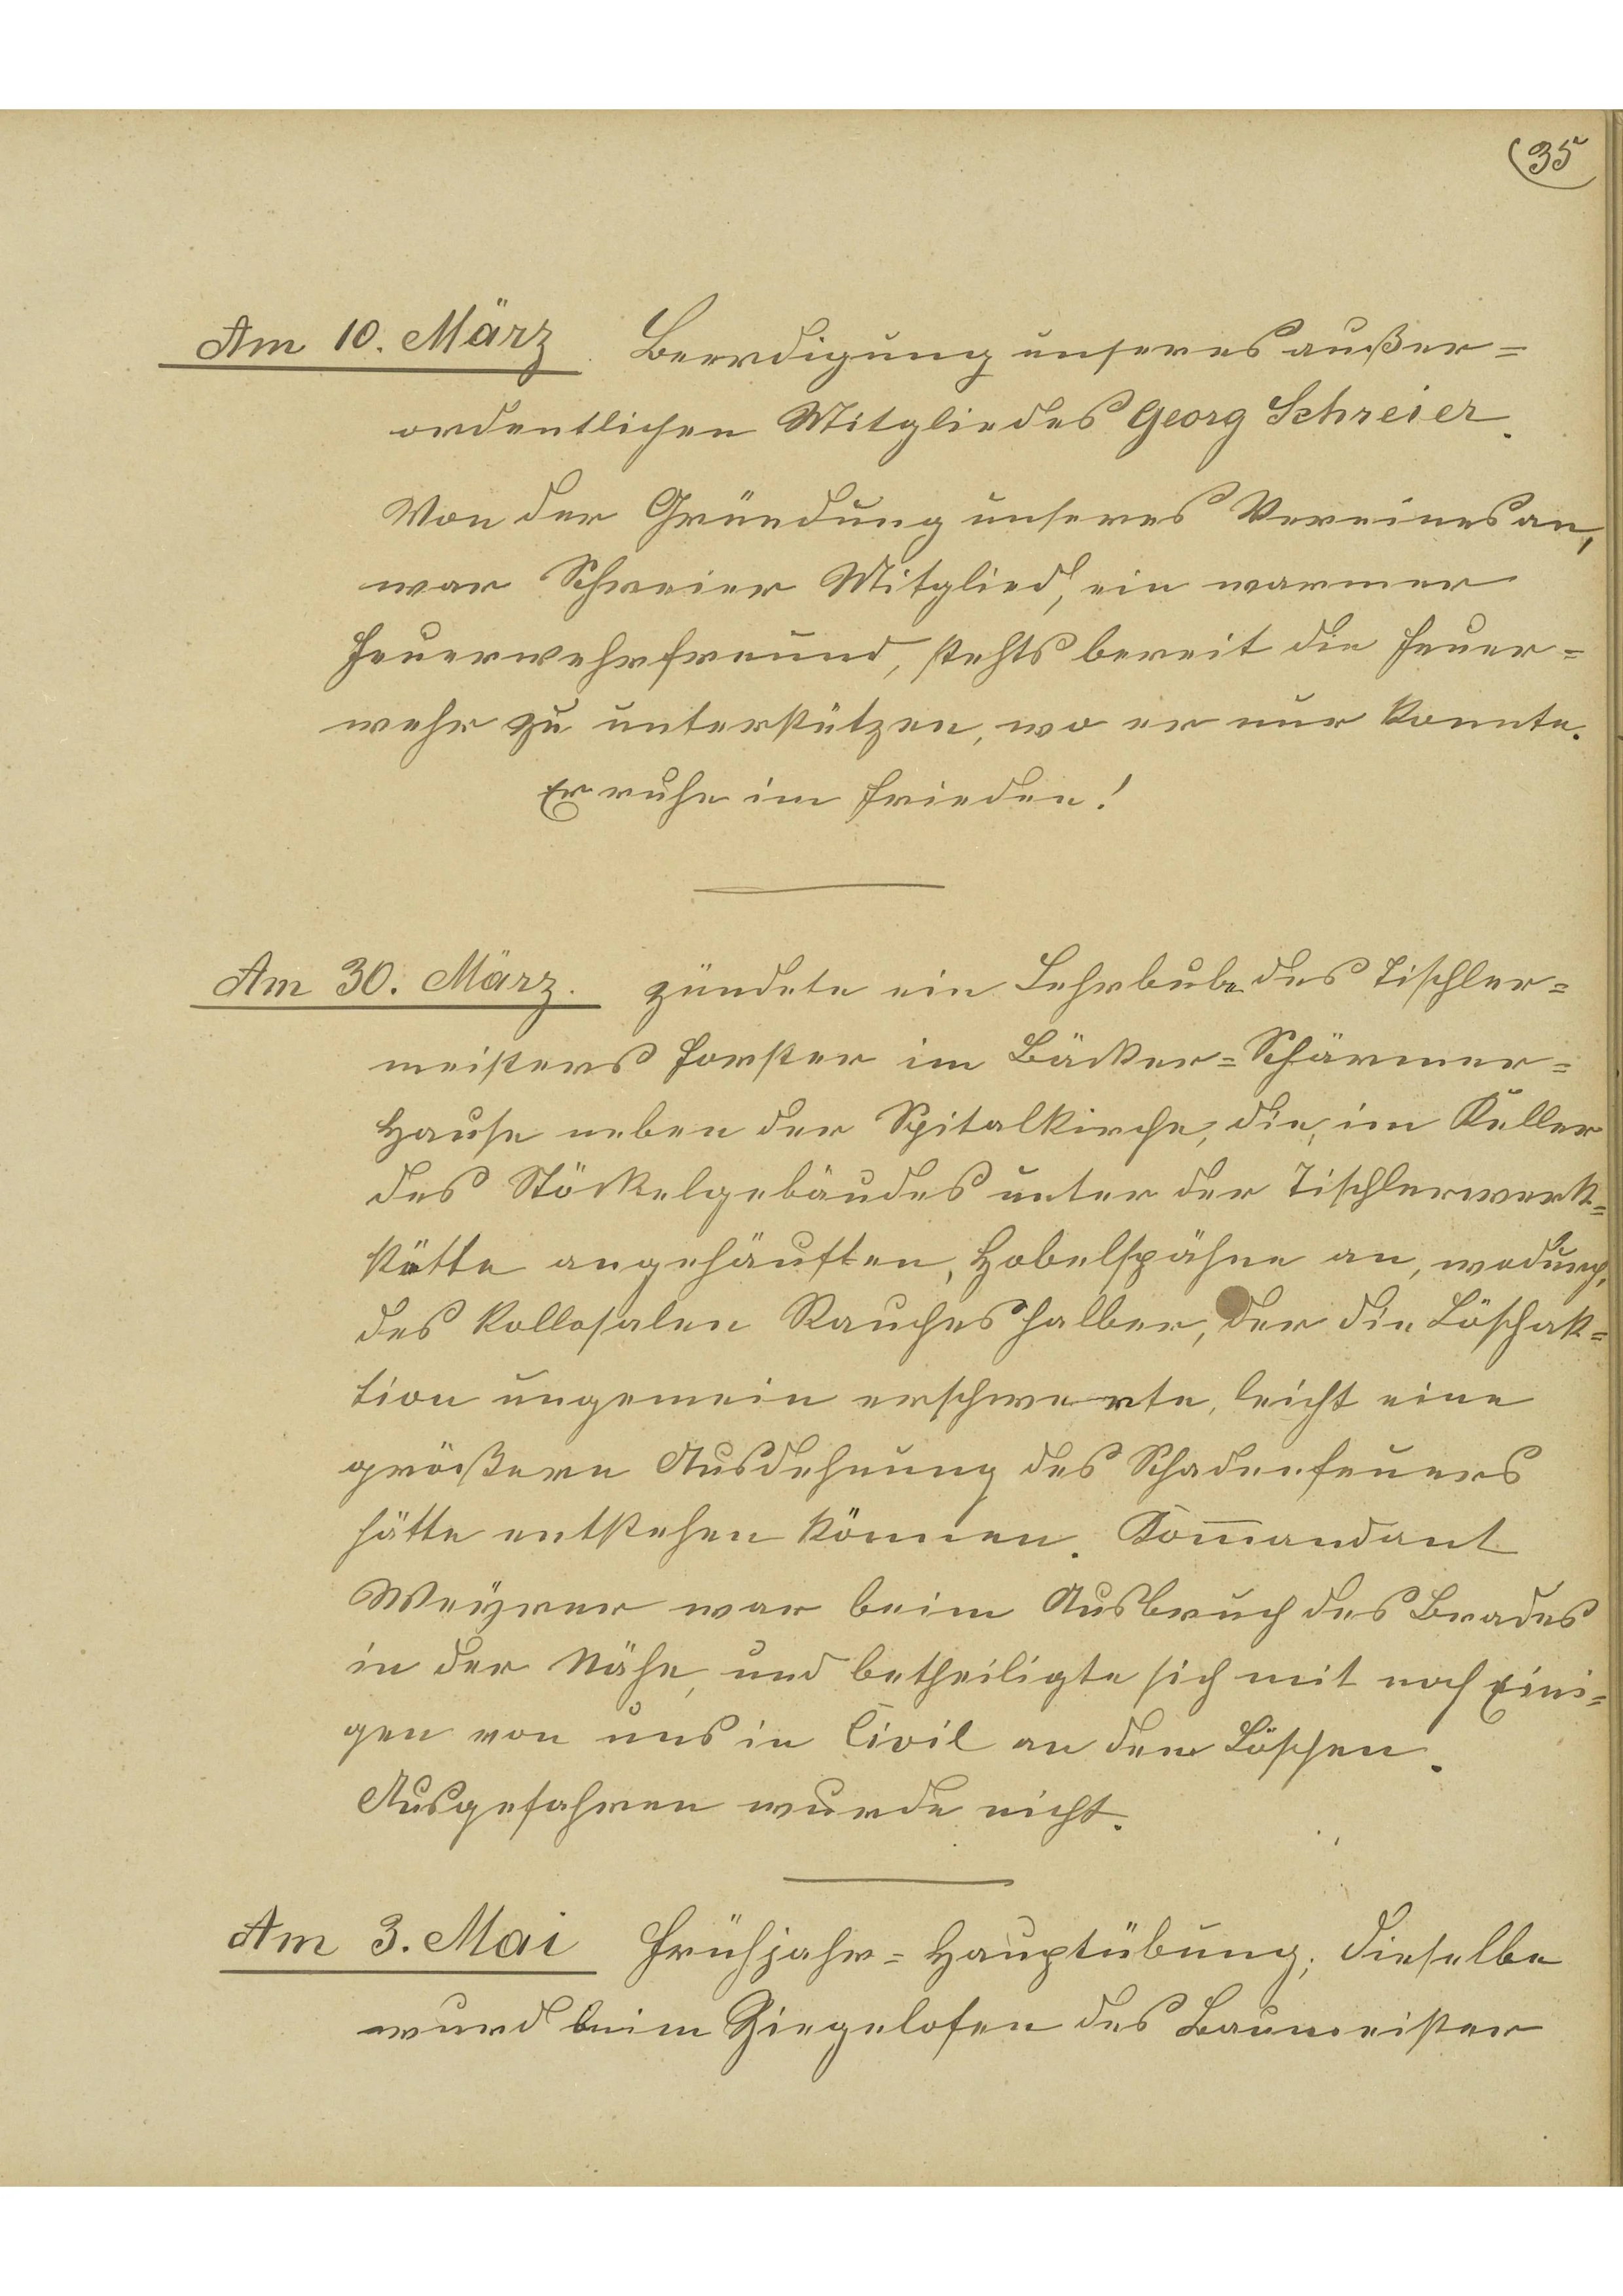 35
Am 10. März. Beerdigung unseres außer=
ordentlichen Mitgliedes Georg Schreier.
Von der Gründung unseres Vereines an,
war Schreier Mitglied, ein warmer
Feuerwehrfreund, stehts bereit die Feuer=
wehr zu unterstützen, wo er nur konnte.
Er ruhe im Frieden!
Am 30. März. zündete ein Lehrbube des Tischler=
meisters Forster im Bäcker=Schärmer=
Hause neben der Spitalkirche, die, im Keller
des Stöckelgebäudes unter der Tischlerwerk=
stätte angehäuften, Hobelspähne an, wodurch,
des kollosalen Rauches halber, der die Löschak=
tion ungemein erschwerte, leicht eine
größere Ausdehnung des Schadenfeuers
hätte entstehen können. Kom̅andant
Weÿrer war beim Ausbruch des Brades
in der Nähe, und betheiligte sich mit noch Eini=
gen von uns in Civil an dem Löschen.
Ausgefahren wurde nicht.
Am 3. Mai Frühjahr=Hauptübung; dieselbe
wurd beim Ziegelofen des Baumeister